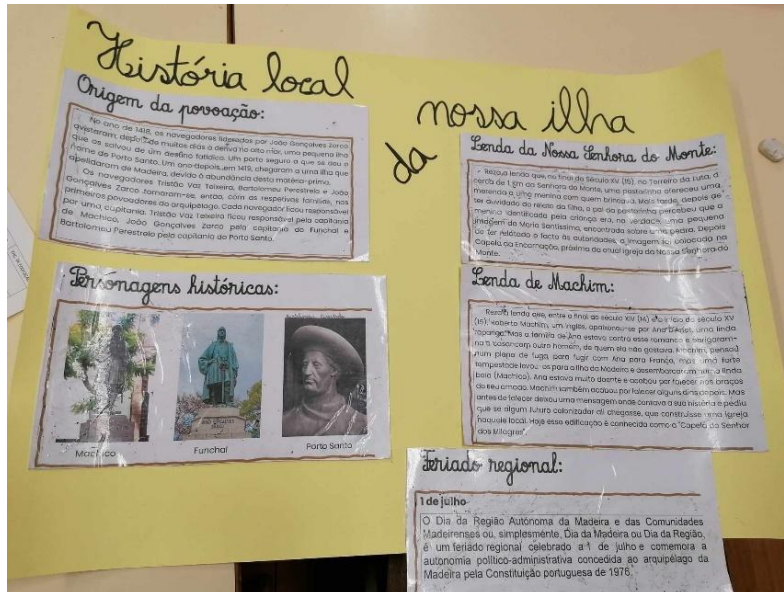 História local
da nossa ilha
Origem da povoação:
No ano de 1418, os navegadores liderados por João Gonçalves Zarco
avistaram, depois de muitos dias à deriva no alto mar, uma pequena ilha
que os salvou de um destino fatídico. Um porto seguro a que se deu o
nome de Porto Santo. Um ano depois, em 1419, chegaram a uma ilha que
apelidaram de Madeira, devido à abundância desta matéria-prima.
Os navegadores Tristão Vaz Teixeira, Bartolomeu Perestrelo e João
Gonçalves Zarco tornaram-se, então, com as respetivas famílias, nos
primeiros povoadores do arquipélago. Cada navegador ficou responsável
por uma capitania. Tristão Vaz Teixeira ficou responsável pela capitania
de Machico, João Gonçalves Zarco pela capitania do Funchal e
Bartolomeu Perestrelo pela capitania do Porto Santo.
Personagens históricas:
Machico
Funchal
Porto Santo
Lenda da Nossa Senhora do Monte:
Reza a lenda que, no final do Século XV (15), no Terreiro da Luta, a
cerca de 1 km da Senhora do Monte, uma pastorinha ofereceu uma
merenda a uma menina com quem brincava. Mais tarde, depois de
ter duvidado do relato da filha, o pai da pastorinha percebeu que a
menina identificada pela criança era, na verdade, uma pequena
imagem de Maria Santíssima, encontrada sobre uma pedra. Depois
de ter relatado o facto às autoridades, a imagem foi colocada na
Capela da Encarnação, próxima da atual igreja da Nossa Senhora do
Monte.
Lenda de Machim:
Reza a lenda que, entre o final do século XIV (14) e o início do século XV
(15), Roberto Machim, um inglês, apaixonou-se por Ana D'Arfet, uma linda
rapariga. Mas a família de Ana estava contra esse romance e obrigaram-
na a casar com outro homem, de quem ela não gostava. Machim, pensou
num plano de fuga, para fugir com Ana para França, mas uma forte
tempestade levou-os para a ilha da Madeira e desembarcaram numa linda
baía (Machico). Ana estava muito doente e acabou por falecer nos braços
do seu amado. Machim também acabou por falecer alguns dias depois. Mas
antes de falecer deixou uma mensagem onde contava a sua história e pediu
que se algum futuro colonizador ali chegasse, que construísse uma igreja
naquele local. Hoje essa edificação é conhecida como a "Capela do Senhor
dos Milagres".
Feriado regional:
1 de julho
O Dia da Região Autónoma da Madeira e das Comunidades
Madeirenses ou, simplesmente, Dia da Madeira ou Dia da Região,
é um feriado regional celebrado a 1 de julho e comemora a
autonomia político-administrativa concedida ao arquipélago da
Madeira pela Constituição portuguesa de 1976.